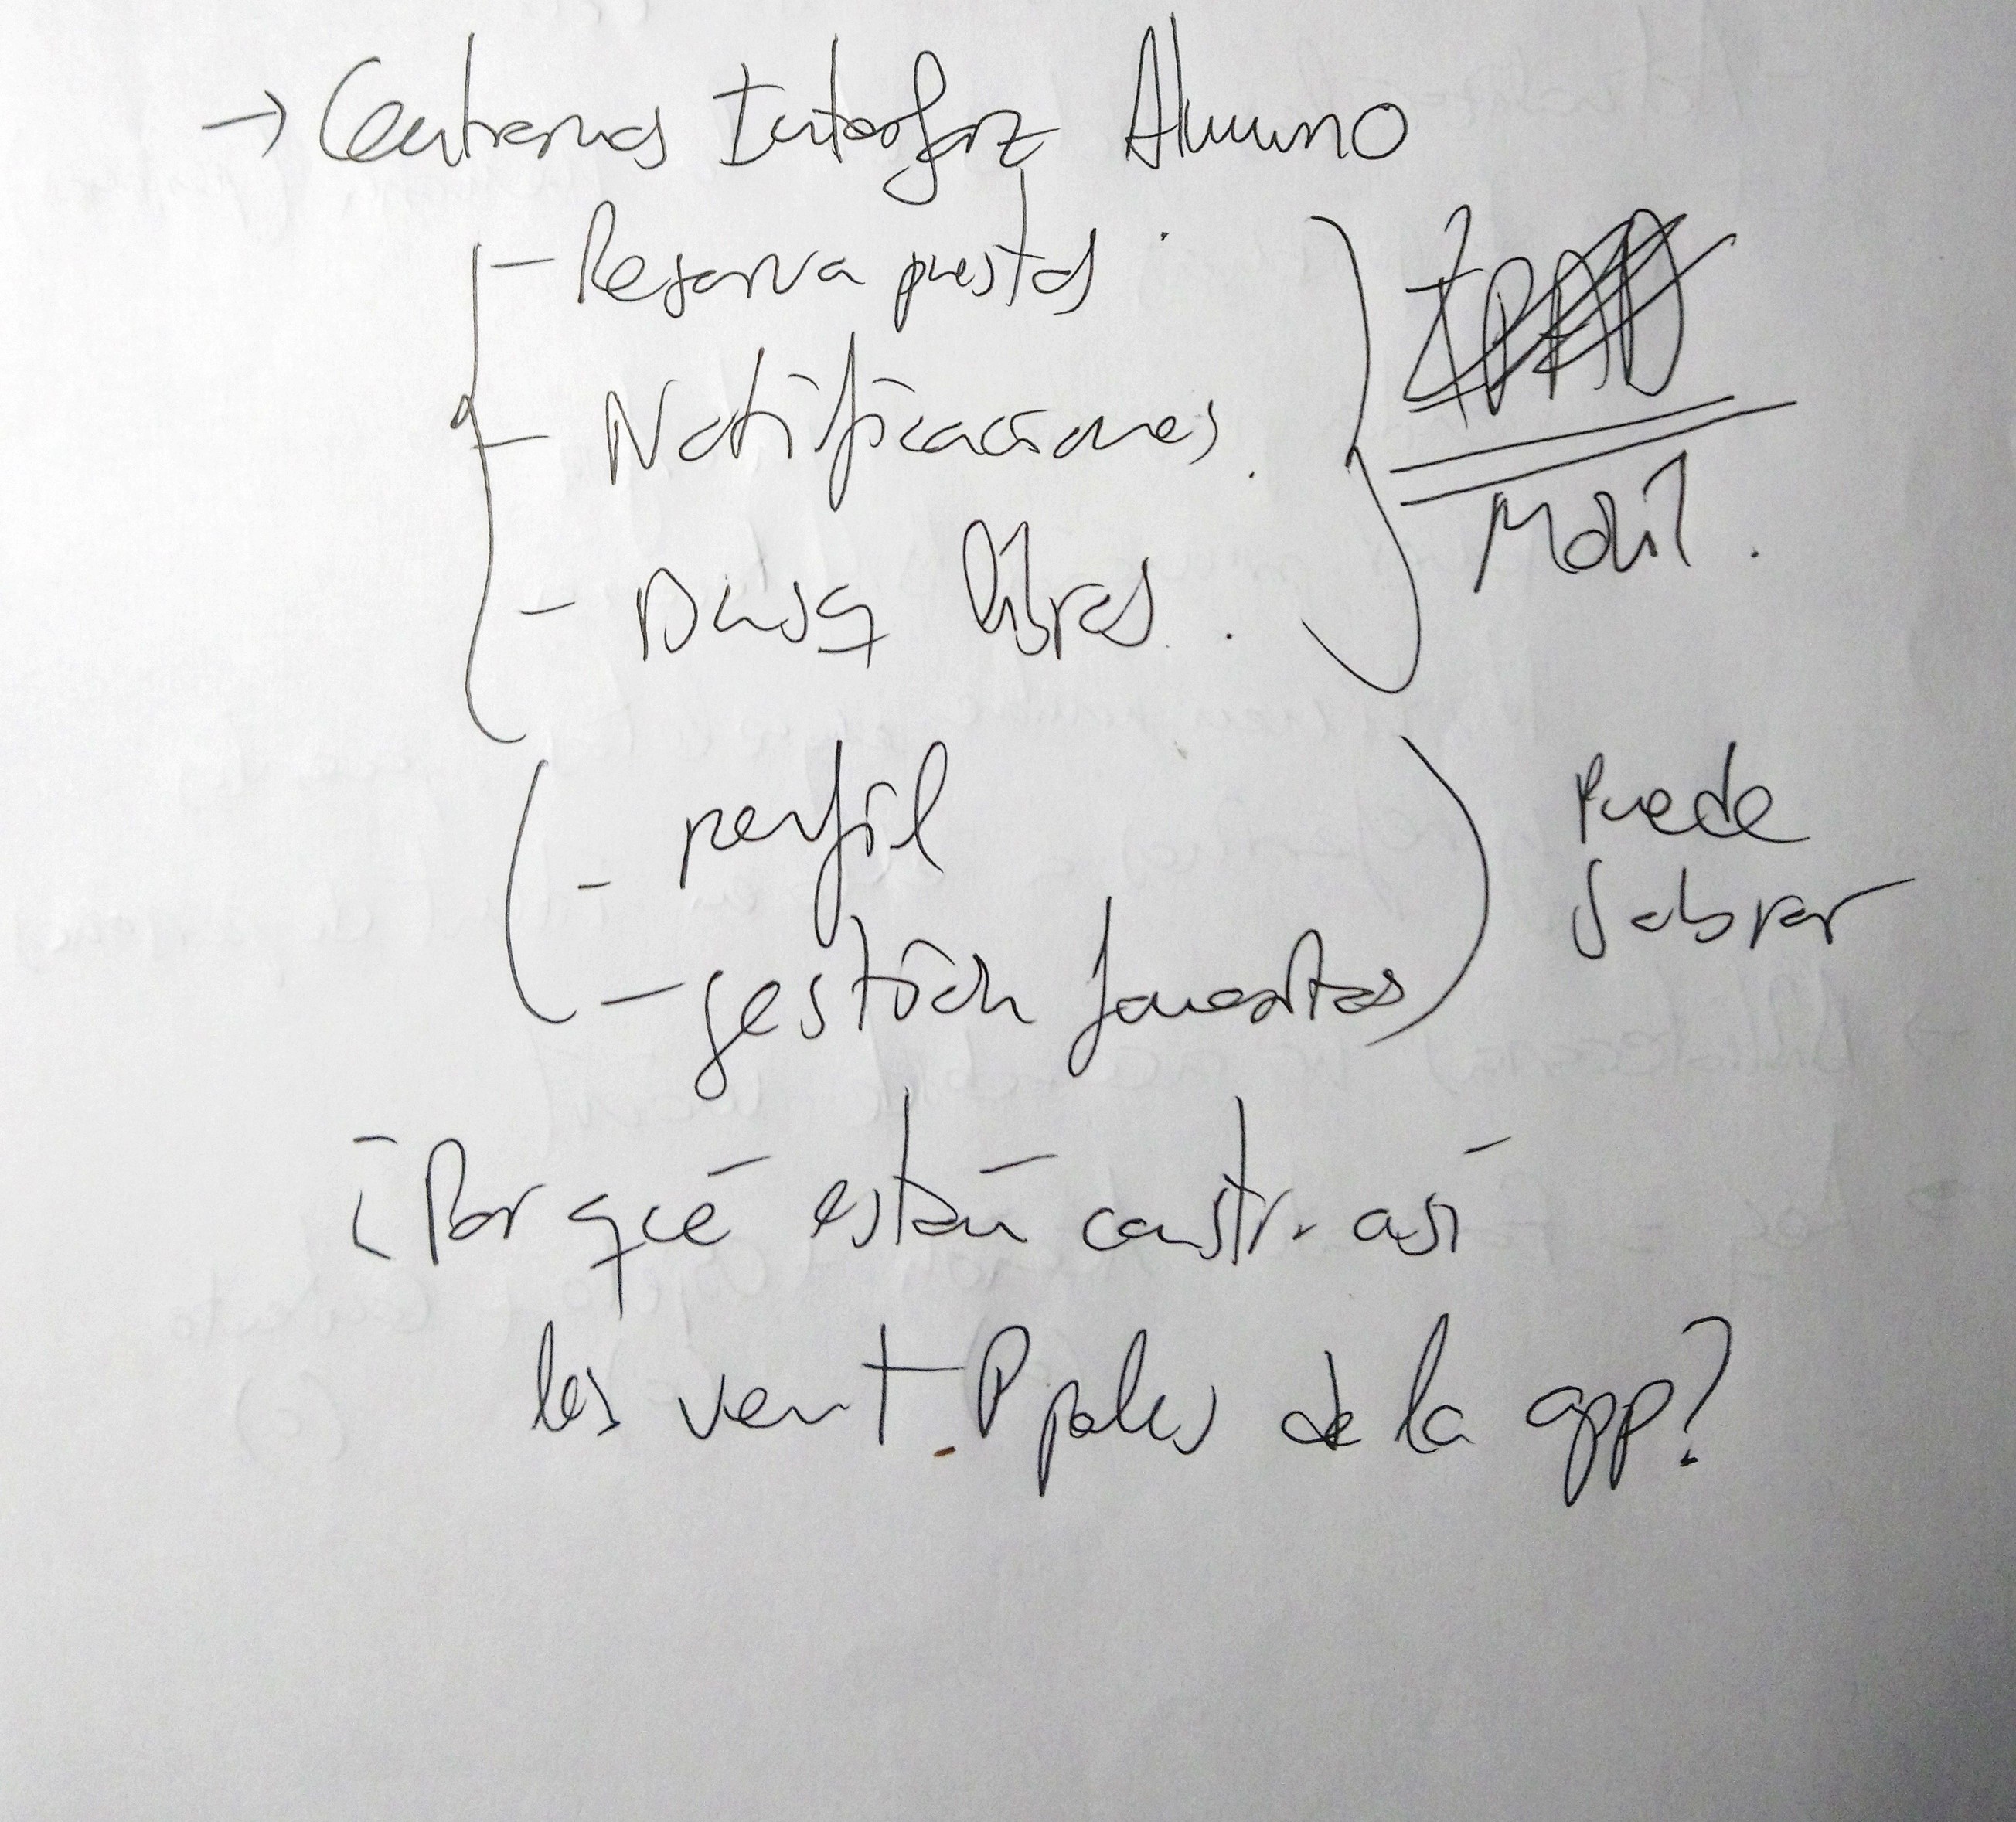 → Centrarnos Interfaz Alumno
- Reserva puestos.
- Notificaciones.
- Busq libros.
Movil.
- perfil
- gestión
Puede
Sobrar
¿Por qué están constr. así
las vent. Ppales de la app?